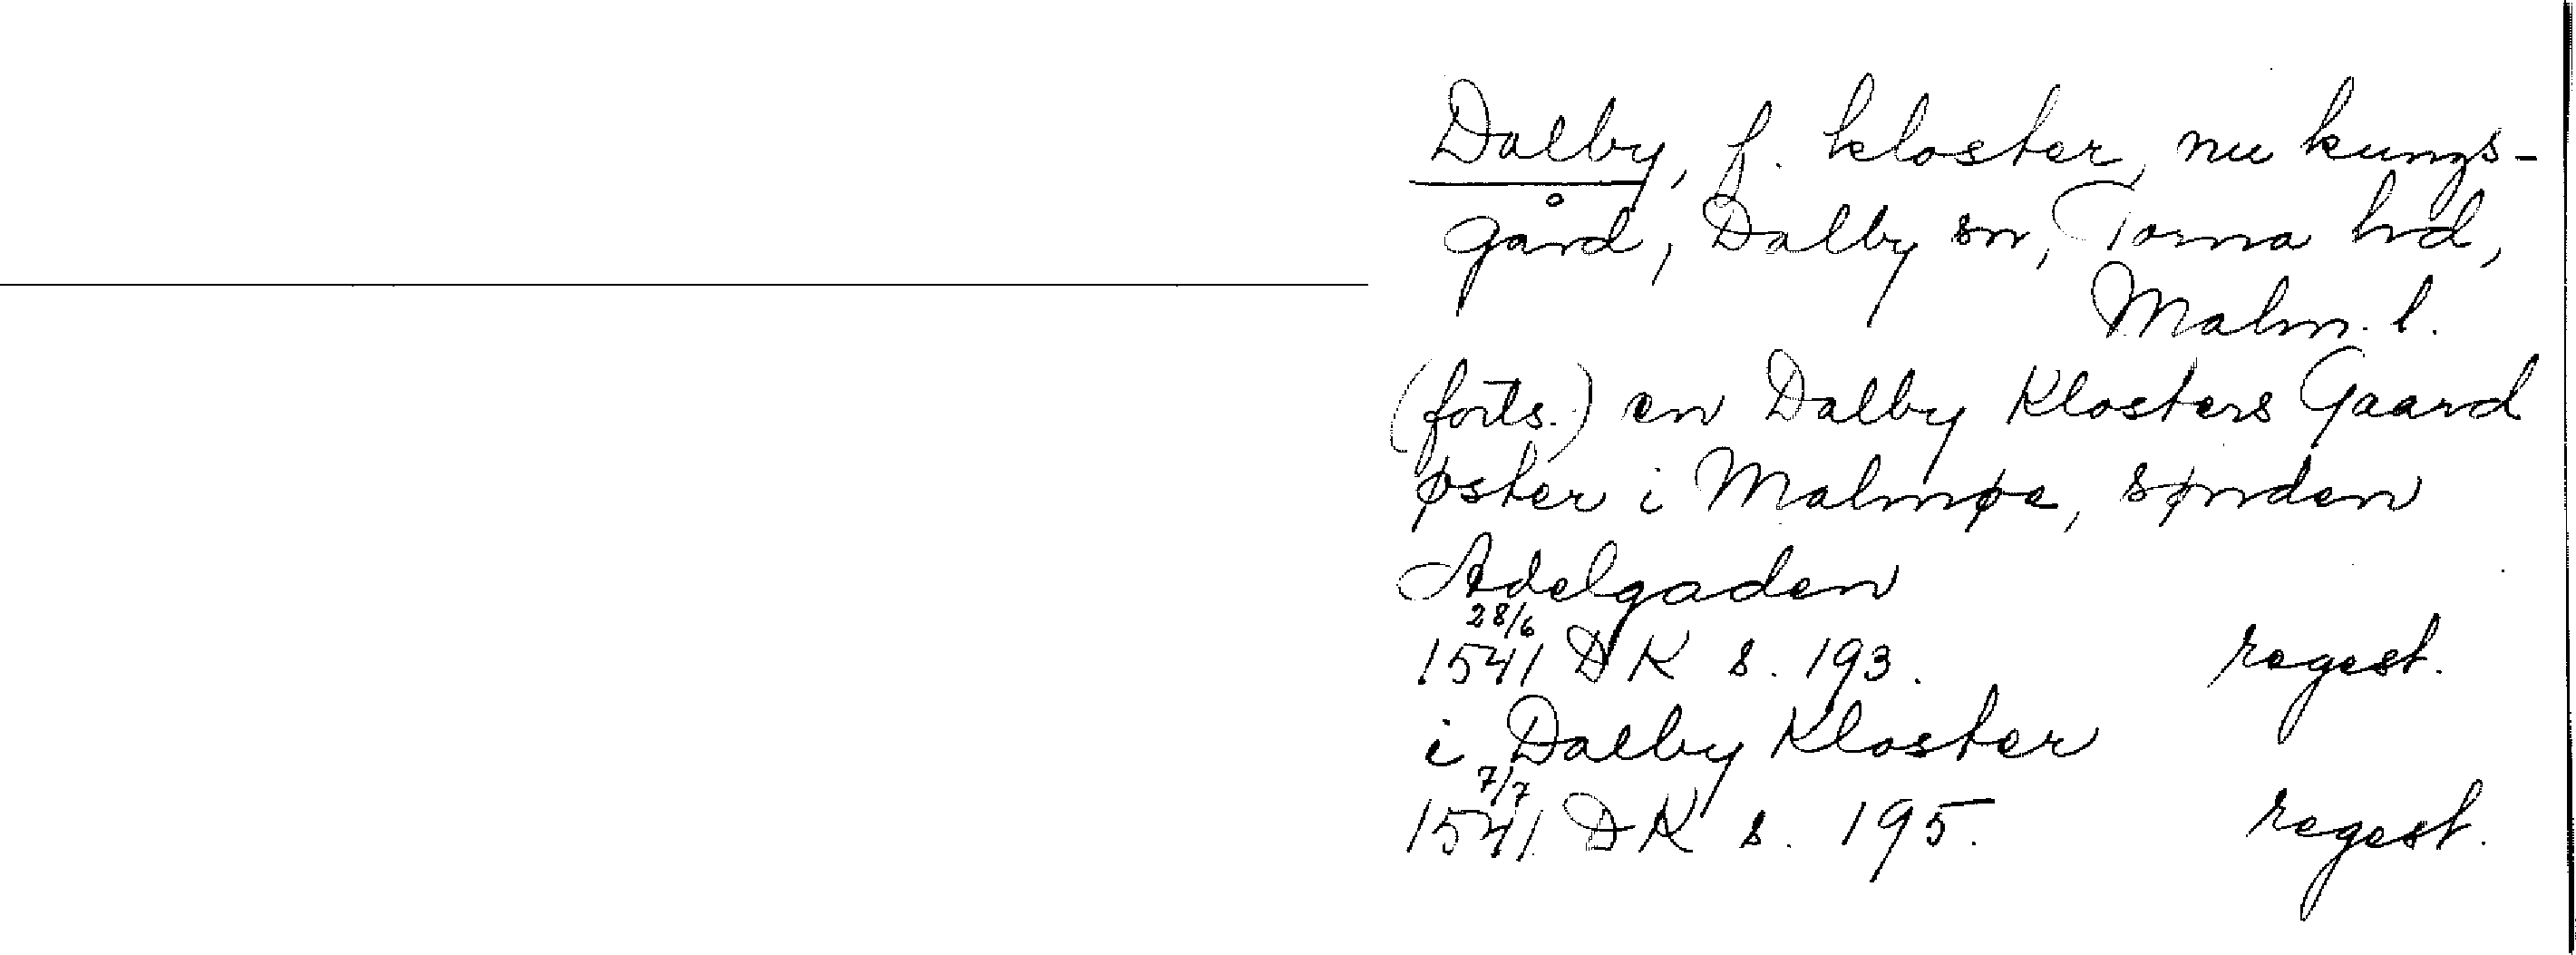 Dalby, f. kloster, nu kungs-
gård, Dalby sn, Torna hd,
Malm. l.
(forts.) en Dalby Klosters Gaard
øster i Malmøe, sønden
Adelgaden
28/6
1541 DK s. 193. regest.
i Dalby Kloster
7/7
1541 DK s. 195. regest.